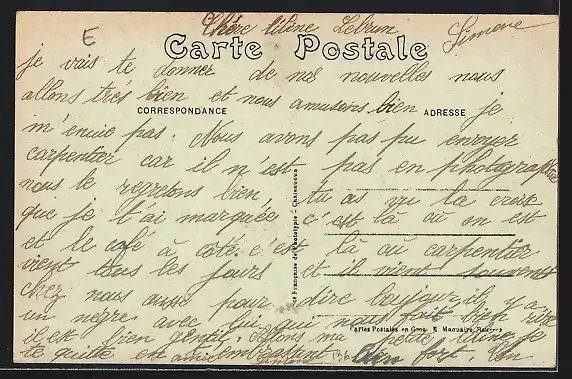 E
Chère titine Lebrun Simone
Carte Postale
je vais te donner de nos nouvelles nous
allons très bien et nous amusons bien je
CORRESPONDANCE ADRESSE
m'enuie pas. Nous avons pas pu envoyer
carpentier car il n'est pas en photographie
nous le regretons bien, tu as vu la croix
que je t'ai marquée c'est là où on est
et le café à côté c'est là où carpentier
vient tous les jours et il vient souvent
chez nous aussi pour dire bonjour, il y a
un nègre avec lui qui nous fait bien rire
Cartes Postales en Gros
il est bien gentil. Allons ma petite titine je
te quitte en embrassant bien fort.